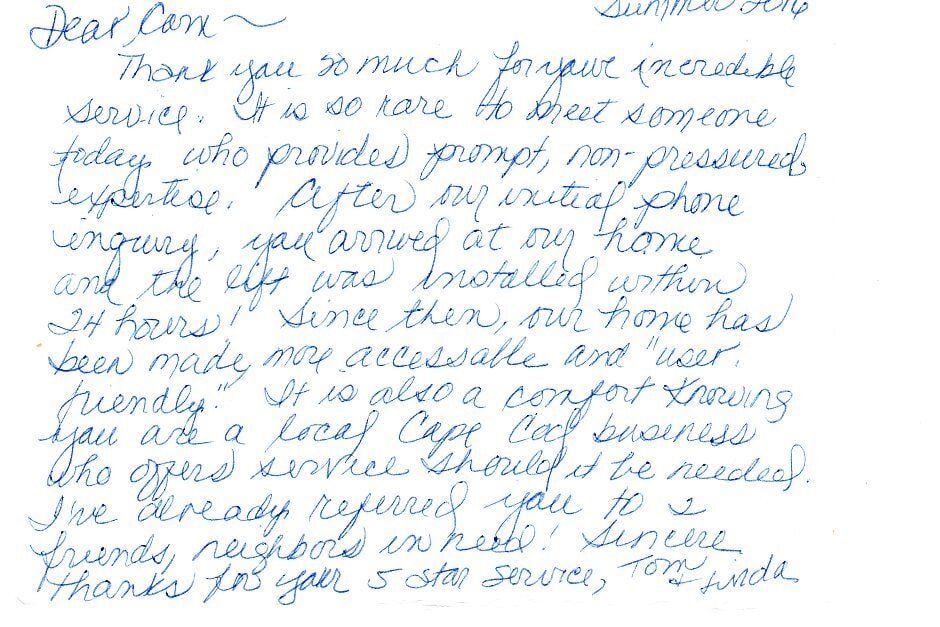 Summer 2016
Dear Cam ~
Thank you so much for your incredible
service. It is so rare to meet someone
today who provides prompt, non-pressured
expertise. After our initial phone
inquiry, you arrived at our home
and the lift was installed within
24 hours! Since then, our home has
been made more accessable and "user
friendly." It is also a comfort knowing
you are a local Cape Cod business
who offers service should it be needed.
I've already referred you to 2
friends, neighbors in need! Sincere
thanks for your 5 star service, Tom & Linda